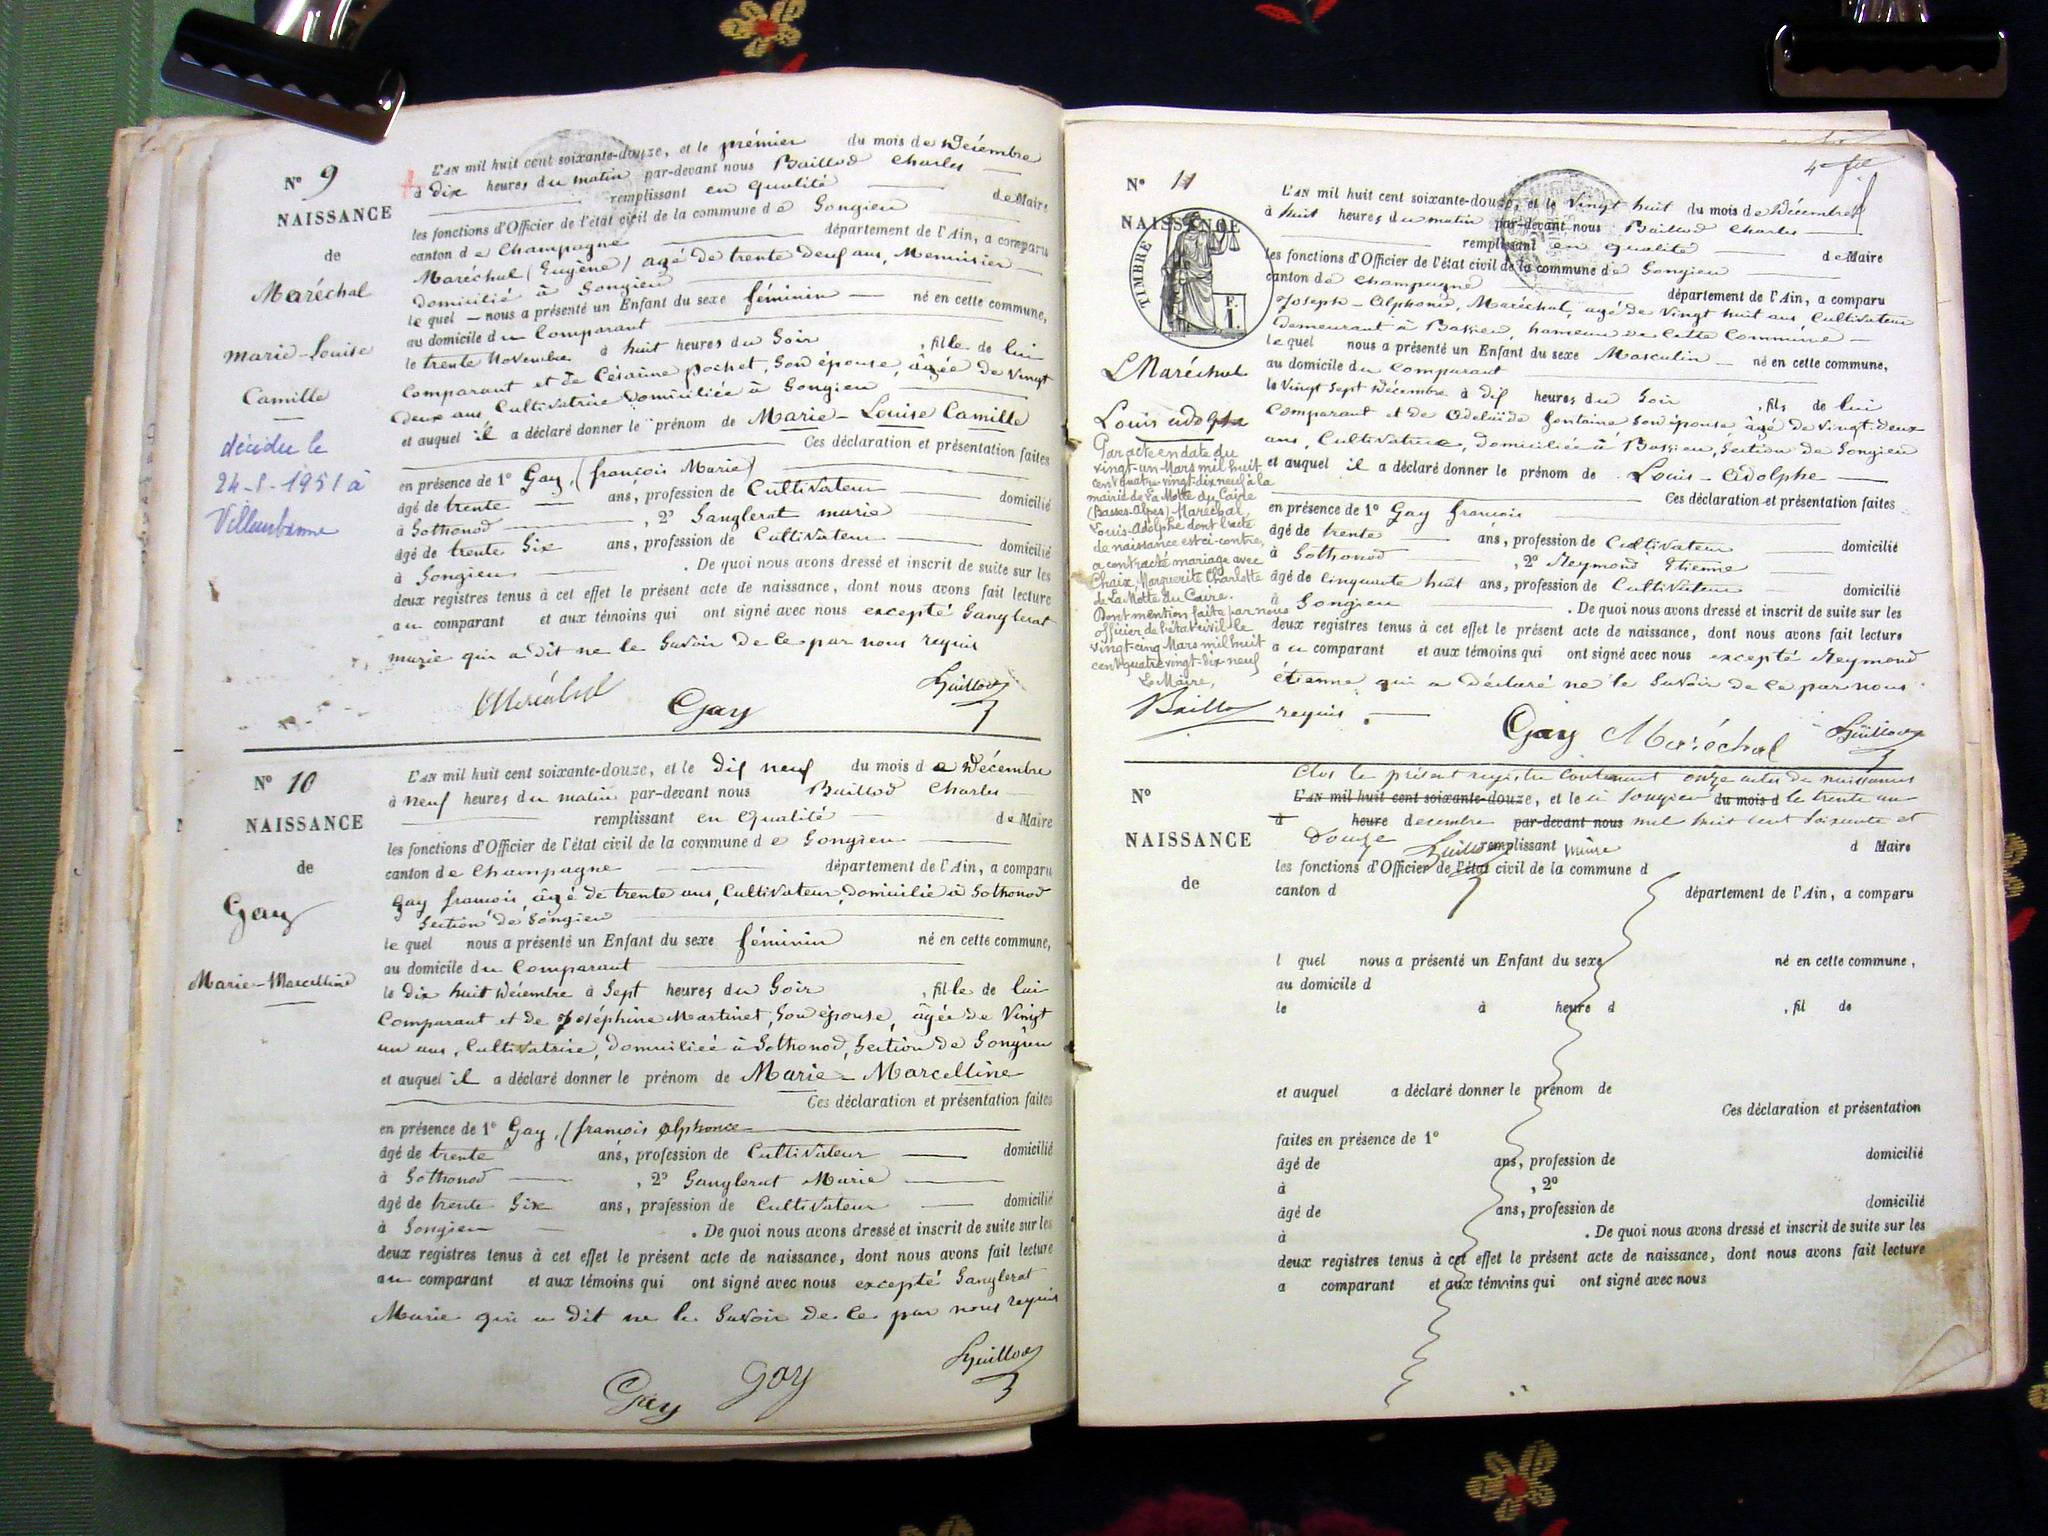 N° 9
NAISSANCE
de
Maréchal
Marie-Louise
Camille
décédée le
24-8-1951 à
Villeurbanne
L'AN mil huit cent soixante-douze, et le prémier du mois de Décembre
à dix heures du matin par-devant nous Baillod Charles
remplissant en qualité de Maire
les fonctions d'Officier de l'état civil de la commune de Songieu
canton de Champagne département de l'Ain, a comparu
Maréchal (Eugène) agé de trente neuf ans, Menuisier
domicilié à Songieu
le quel nous a présenté un Enfant du sexe féminin né en cette commune,
au domicile du Comparant
le trente Novembre à huit heures du Soir, fille de lui
Comparant et de Césarine pochet, Son épouse, âgée de Vingt
deux ans Cultivatrice domiciliée à Songieu
et auquel il a déclaré donner le prénom de Marie-Louise Camille
Ces déclaration et présentation faites
en présence de 1° Gay, (françois Marie)
âgé de trente ans, profession de Cultivateur domicilié
à Sothonod, 2° Sanglerat marie
âgé de trente Six ans, profession de Cultivateur domicilié
à Songieu. De quoi nous avons dressé et inscrit de suite sur les
deux registres tenus à cet effet le présent acte de naissance, dont nous avons fait lecture
au comparant et aux témoins qui ont signé avec nous excepté Sanglerat
marie qui a dit ne le Savoir de ce par nous requis
Maréchal Gay Baillod
N° 10
NAISSANCE
de
Gay
Marie-Marcelline
L'AN mil huit cent soixante-douze, et le dix neuf du mois de Décembre
à neuf heures du matin par-devant nous Baillod Charles
remplissant en qualité de Maire
les fonctions d'Officier de l'état civil de la commune de Songieu
canton de Champagne département de l'Ain, a comparu
Gay francois, âgé de trente ans, Cultivateur, domicilié à Sothonod
Section de Songieu
le quel nous a présenté un Enfant du sexe féminin né en cette commune,
au domicile du Comparant
le dix huit Décembre à Sept heures du Soir, fille de lui
Comparant et de Joséphine Martinet, Son épouse, âgée de Vingt
un ans, Cultivatrice, domiciliée à Sothonod, Section de Songieu
et auquel il a déclaré donner le prénom de Marie-Marcelline
Ces déclaration et présentation faites
en présence de 1° Gay, (francois Alphonce
âgé de trente ans, profession de Cultivateur domicilié
à Sothonod, 2° Sanglerat Marie
âgé de trente Six ans, profession de Cultivateur domicilié
à Songieu. De quoi nous avons dressé et inscrit de suite sur les
deux registres tenus à cet effet le présent acte de naissance, dont nous avons fait lecture
au comparant et aux témoins qui ont signé avec nous excepté Sanglerat
Marie qui a dit ne le Savoir de ce par nous requis
Gay Gay Baillod
4e flle
N° 11
NAISSANCE
TIMBRE
F.
1.
Maréchal
Louis adolphe
Par acte en date du
vingt-un Mars mil huit
cent quatre-vingt-dix neuf à la
mairie de La Motte du Caire
(Basses-Alpes) Maréchal
Louis-Adolphe dont l'acte
de naissance est ci-contre,
a contracté mariage avec
Chaix, Marguerite Charlotte
de La Motte du Caire.
Dont mention faite par nous
officier de l'état civil le
vingt-cinq Mars mil huit
cent quatre vingt-dix-neuf
Le Maire,
Baillod
L'AN mil huit cent soixante-douze, et le Vingt huit du mois de Décembre
à huit heures du matin par-devant nous Baillod Charles
remplissant en qualité de Maire
les fonctions d'Officier de l'état civil de la commune de Songieu
canton de Champagne département de l'Ain, a comparu
Joseph-Alphonse, Maréchal, agé de Vingt huit ans, Cultivateur
demeurant à Bassieu, hameau de Cette Commune
le quel nous a présenté un Enfant du sexe Masculin né en cette commune,
au domicile du Comparant
le Vingt Sept Décembre à dix heures du Soir, fils de lui
Comparant et de Adelaïde fontaine Son épouse âgé de Vingt-deux
ans, Cultivatrice, domiciliée à Bassieu, Section de Songieu
et auquel il a déclaré donner le prénom de Louis-Adolphe
Ces déclaration et présentation faites
en présence de 1° Gay francois
âgé de trente ans, profession de Cultivateur domicilié
à Sothonod, 2° Reymond Etienne
âgé de Cinquante huit ans, profession de Cultivateur domicilié
à Songieu. De quoi nous avons dressé et inscrit de suite sur les
deux registres tenus à cet effet le présent acte de naissance, dont nous avons fait lecture
au comparant et aux témoins qui ont signé avec nous excepté Reymond
étienne qui a déclaré ne le Savoir de ce par nous
requis.
Gay Maréchal Baillod
Clos le présent registre Contenant onze actes de naissances
N°
NAISSANCE
de
L'AN mil huit cent soixante-douze, et le à Songieu du mois d le trente un
à heure decembre par-devant nous mil huit cent soixante et
Douze Baillod remplissant maire d Maire
les fonctions d'Officier de l'état civil de la commune d
canton d département de l'Ain, a comparu
l quel nous a présenté un Enfant du sexe né en cette commune,
au domicile d
le à heure d , fil de
et auquel a déclaré donner le prénom de
Ces déclaration et présentation
faites en présence de 1°
âgé de ans, profession de domicilié
à , 2°
âgé de ans, profession de domicilié
à . De quoi nous avons dressé et inscrit de suite sur les
deux registres tenus à cet effet le présent acte de naissance, dont nous avons fait lecture
a comparant et aux témoins qui ont signé avec nous